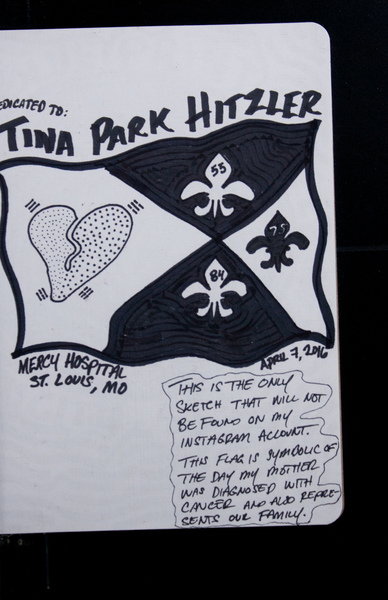 DEDICATED TO:
TINA PARK HITZLER
55
75
84
MERCY HOSPITAL
ST. LOUIS, MO
APRIL 7, 2016
THIS IS THE ONLY
SKETCH THAT WILL NOT
BE FOUND ON MY
INSTAGRAM ACCOUNT.
THIS FLAG IS SYMBOLIC OF
THE DAY MY MOTHER
WAS DIAGNOSED WITH
CANCER AND ALSO REPRE-
SENTS OUR FAMILY.